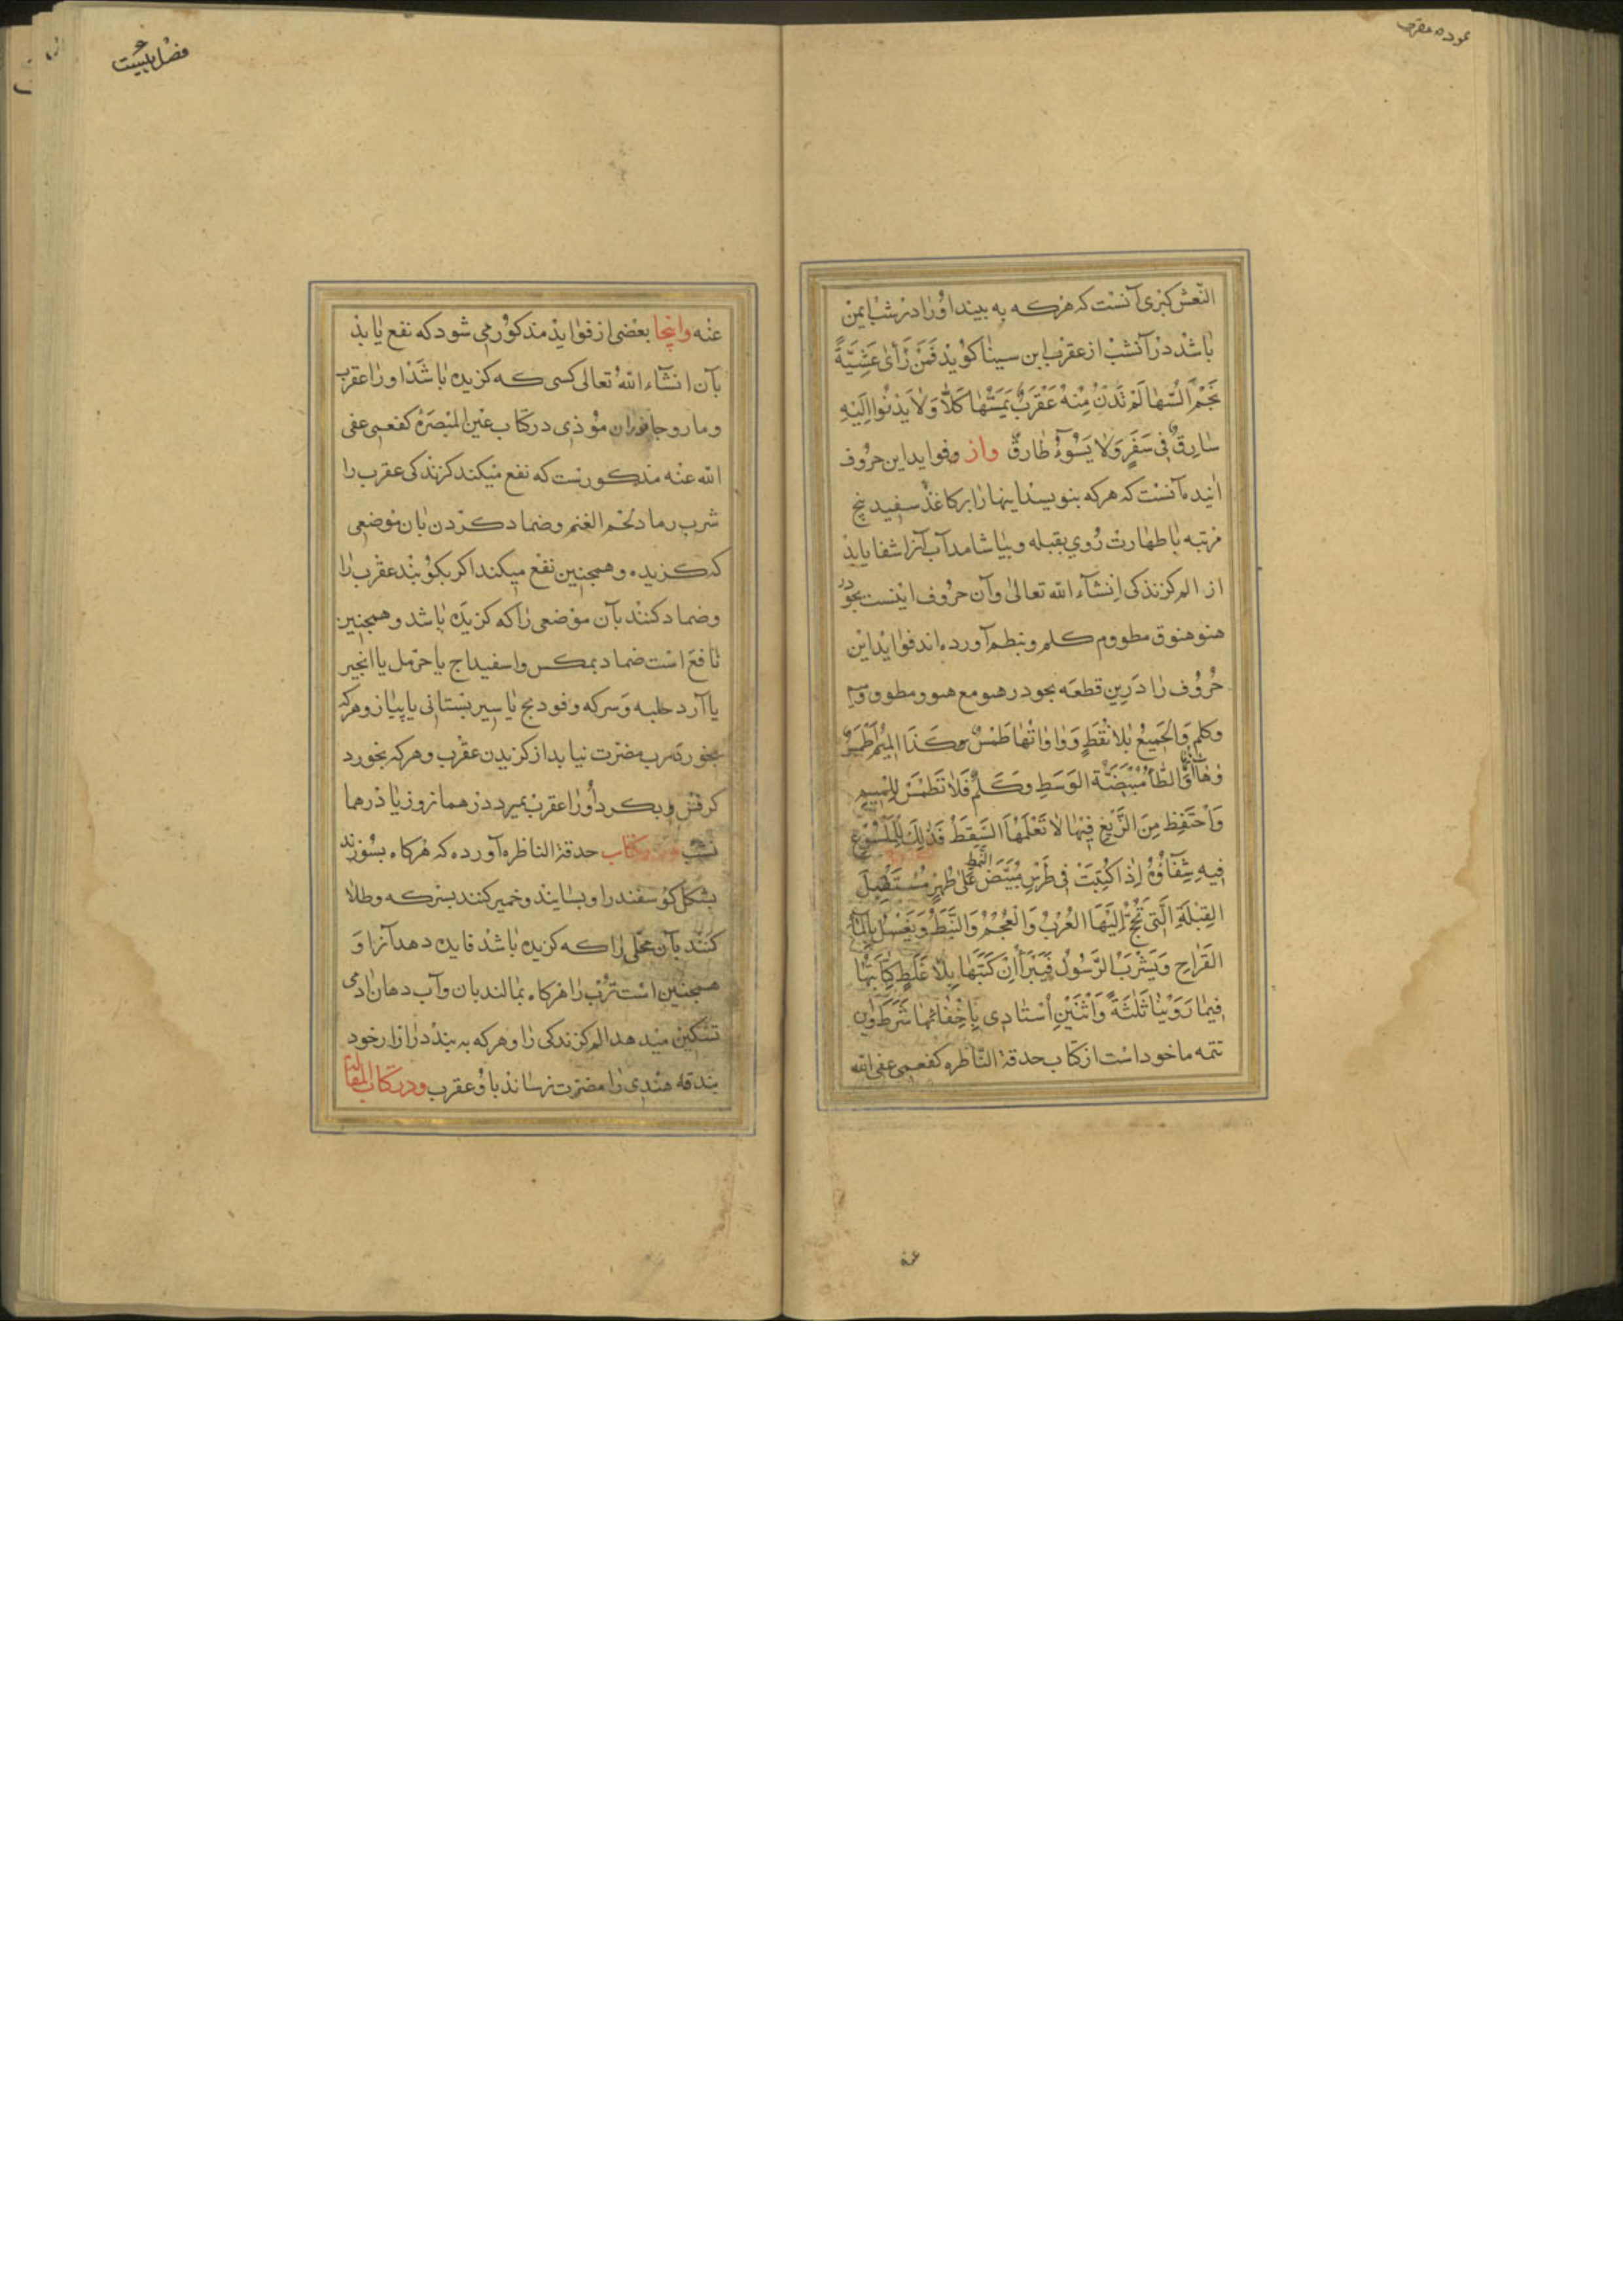 عوذه عقرب
النّعش كبرى آنست كه هركه به بيند او را در شب ايمن
باشد در آنشب از عقرب ابن سينا كويد فَمَنْ رَأى عَشِيَّةً
نَجْمَ السُّها لَمْ تَدْنُ مِنْهُ عَقْرَبٌ يَمَسُّها كَلّا وَلا يَدْنُوا اِلَيْهِ
سارِقٌ فى سَفَرٍ وَلا يَسُوءُ طارِقٌ واز وفوايد اين حروف
آنست كه هركه بنويسد اينها را بر كاغذ سفيد پنج
مرتبه با طهارت روي بقبله وبياشامد آب آنرا شفا يابد
از الم كزندكى انشآء الله تعالى وآن حروف اينست بجود در
هنو هنوق مطووم كلم وبنظم آورده اند فوايد اين
حروف را درين قطعه بجود در هبو مع هبوو مطووو
وكلم وَالْجَميعُ بِلا نُقَطٍ وَواواتُها طَمْسٌ وكَذَا الميمُ
وهاآتُها وَالطّاءُ مُبْيَضَّة الوَسَطِ وَكَلَمٌ فَلا تَطْمَسْ لِلْميمِ
وَاحْتَفِظ مِنَ الزَّيْغِ فيها لا تَعْلَمْهَا السَّقَطُ فَذلِكَ لِلْمَلْسُوعِ
فيهِ شِفاؤُهُ اِذا كُتِبَتْ فى طَرْسٍ مُبْيَضِّ النَّمَط عَلى طُهْرٍ مُسْتَقْبِلَ
القِبْلَةِ الَّتى تَحُجُّ اِلَيْهَا العُرْبُ وَالْعُجْمُ وَالنَّبَطُ وَيَغْسِلُ بِالْمآءِ
القَراحِ وَيَشْرَبُ الرَّسُولُ فَيَبْرَأُ اِنْ كَتَبَها بِلا غَلَطٍ كِتابَتُها
فيما رَوَيْنا ثَلثَةً وَاثْنَيْنِ اُسْتادى بِاِخْفائِها شَرَطَ واين
تتمه ماخوذ است از كتاب حدقة النّاظره كفعمى عفى الله
عنه
فضل بيست
عنه واينجا بعضى از فوايد مذكور مى شود كه نفع يابد
بآن انشآء اللهُ تعالى كسى كه كزيده باشد او را عقرب
ومار وجانوران موذى در كتاب عين المبصره كفعمى عفى
الله عنه مذكورست كه نفع ميكند كزندكى عقرب را
شرب رماد لحم الغنم وضماد كردن بان موضعى
كه كزيده وهمچنين نفع ميكند اكر بكوبند عقرب را
وضماد كنند بآن موضعى را كه كزيده باشد وهمچنين
نافع است ضماد بمكس واسفيداج يا حرمل يا انجير
يا آرد حلبه وسركه وفودنج يا سير بستانى يا پياز وهركه
بخورد ترب مضرت نيابد از كزيدن عقرب وهركه بخورد
كرفس وبكرد او را عقرب بميرد در همان روز يا در همان
شب ودر كتاب حدقة الناظره آورده كه هركاه بسوزند
پشكل كوسفند را وبسايند وخمير كنند بسركه وطلا
كنند بآن محلى را كه كزيده باشد فايده دهد آنرا و
همچنين است ترب را هركاه بمالند بان وآب دهان ادمى
تسكين ميدهد الم كزندكى را وهركه به بندد در ازار خود
بندقه هندى را مضرت نرساند باو عقرب ودر كتاب